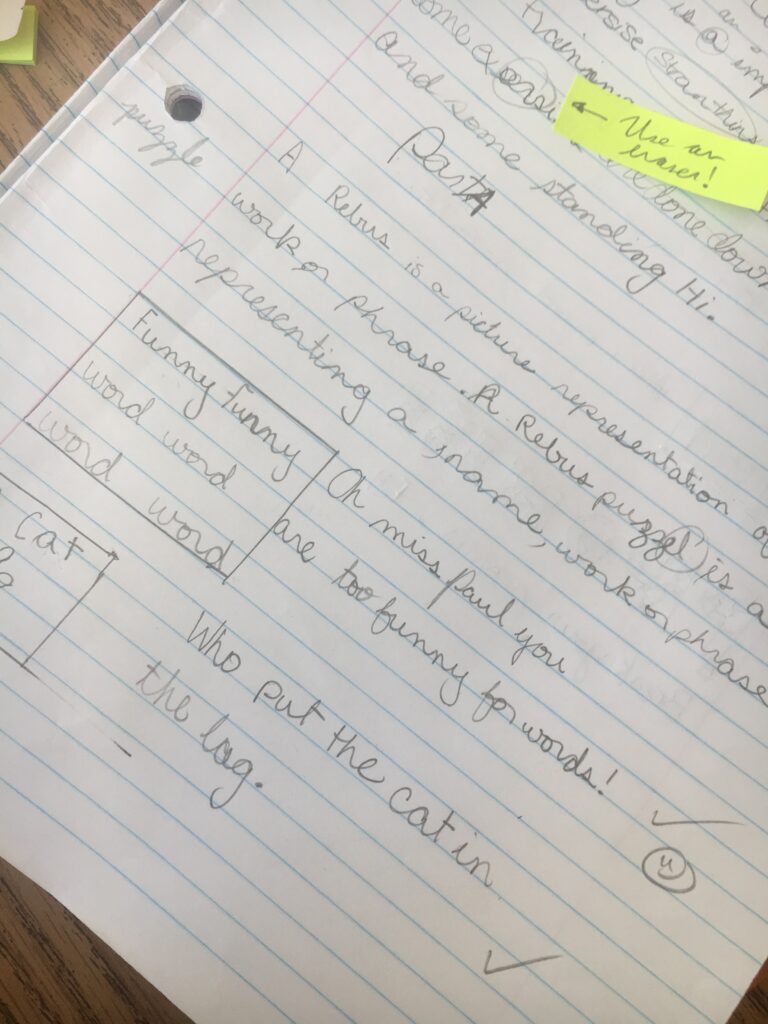 an
is a imp
Training
ersise
ome
and some standing Hi.
← Use an
eraser!
Part A
puzzle
A Rebus is a picture representation of
work or phrase. A Rebus puzzel is a
representing a name, work or phrase
Funny Funny
word word
word word
Oh miss Paul you
are too funny for words!
Cat
Who put the cat in
the log.